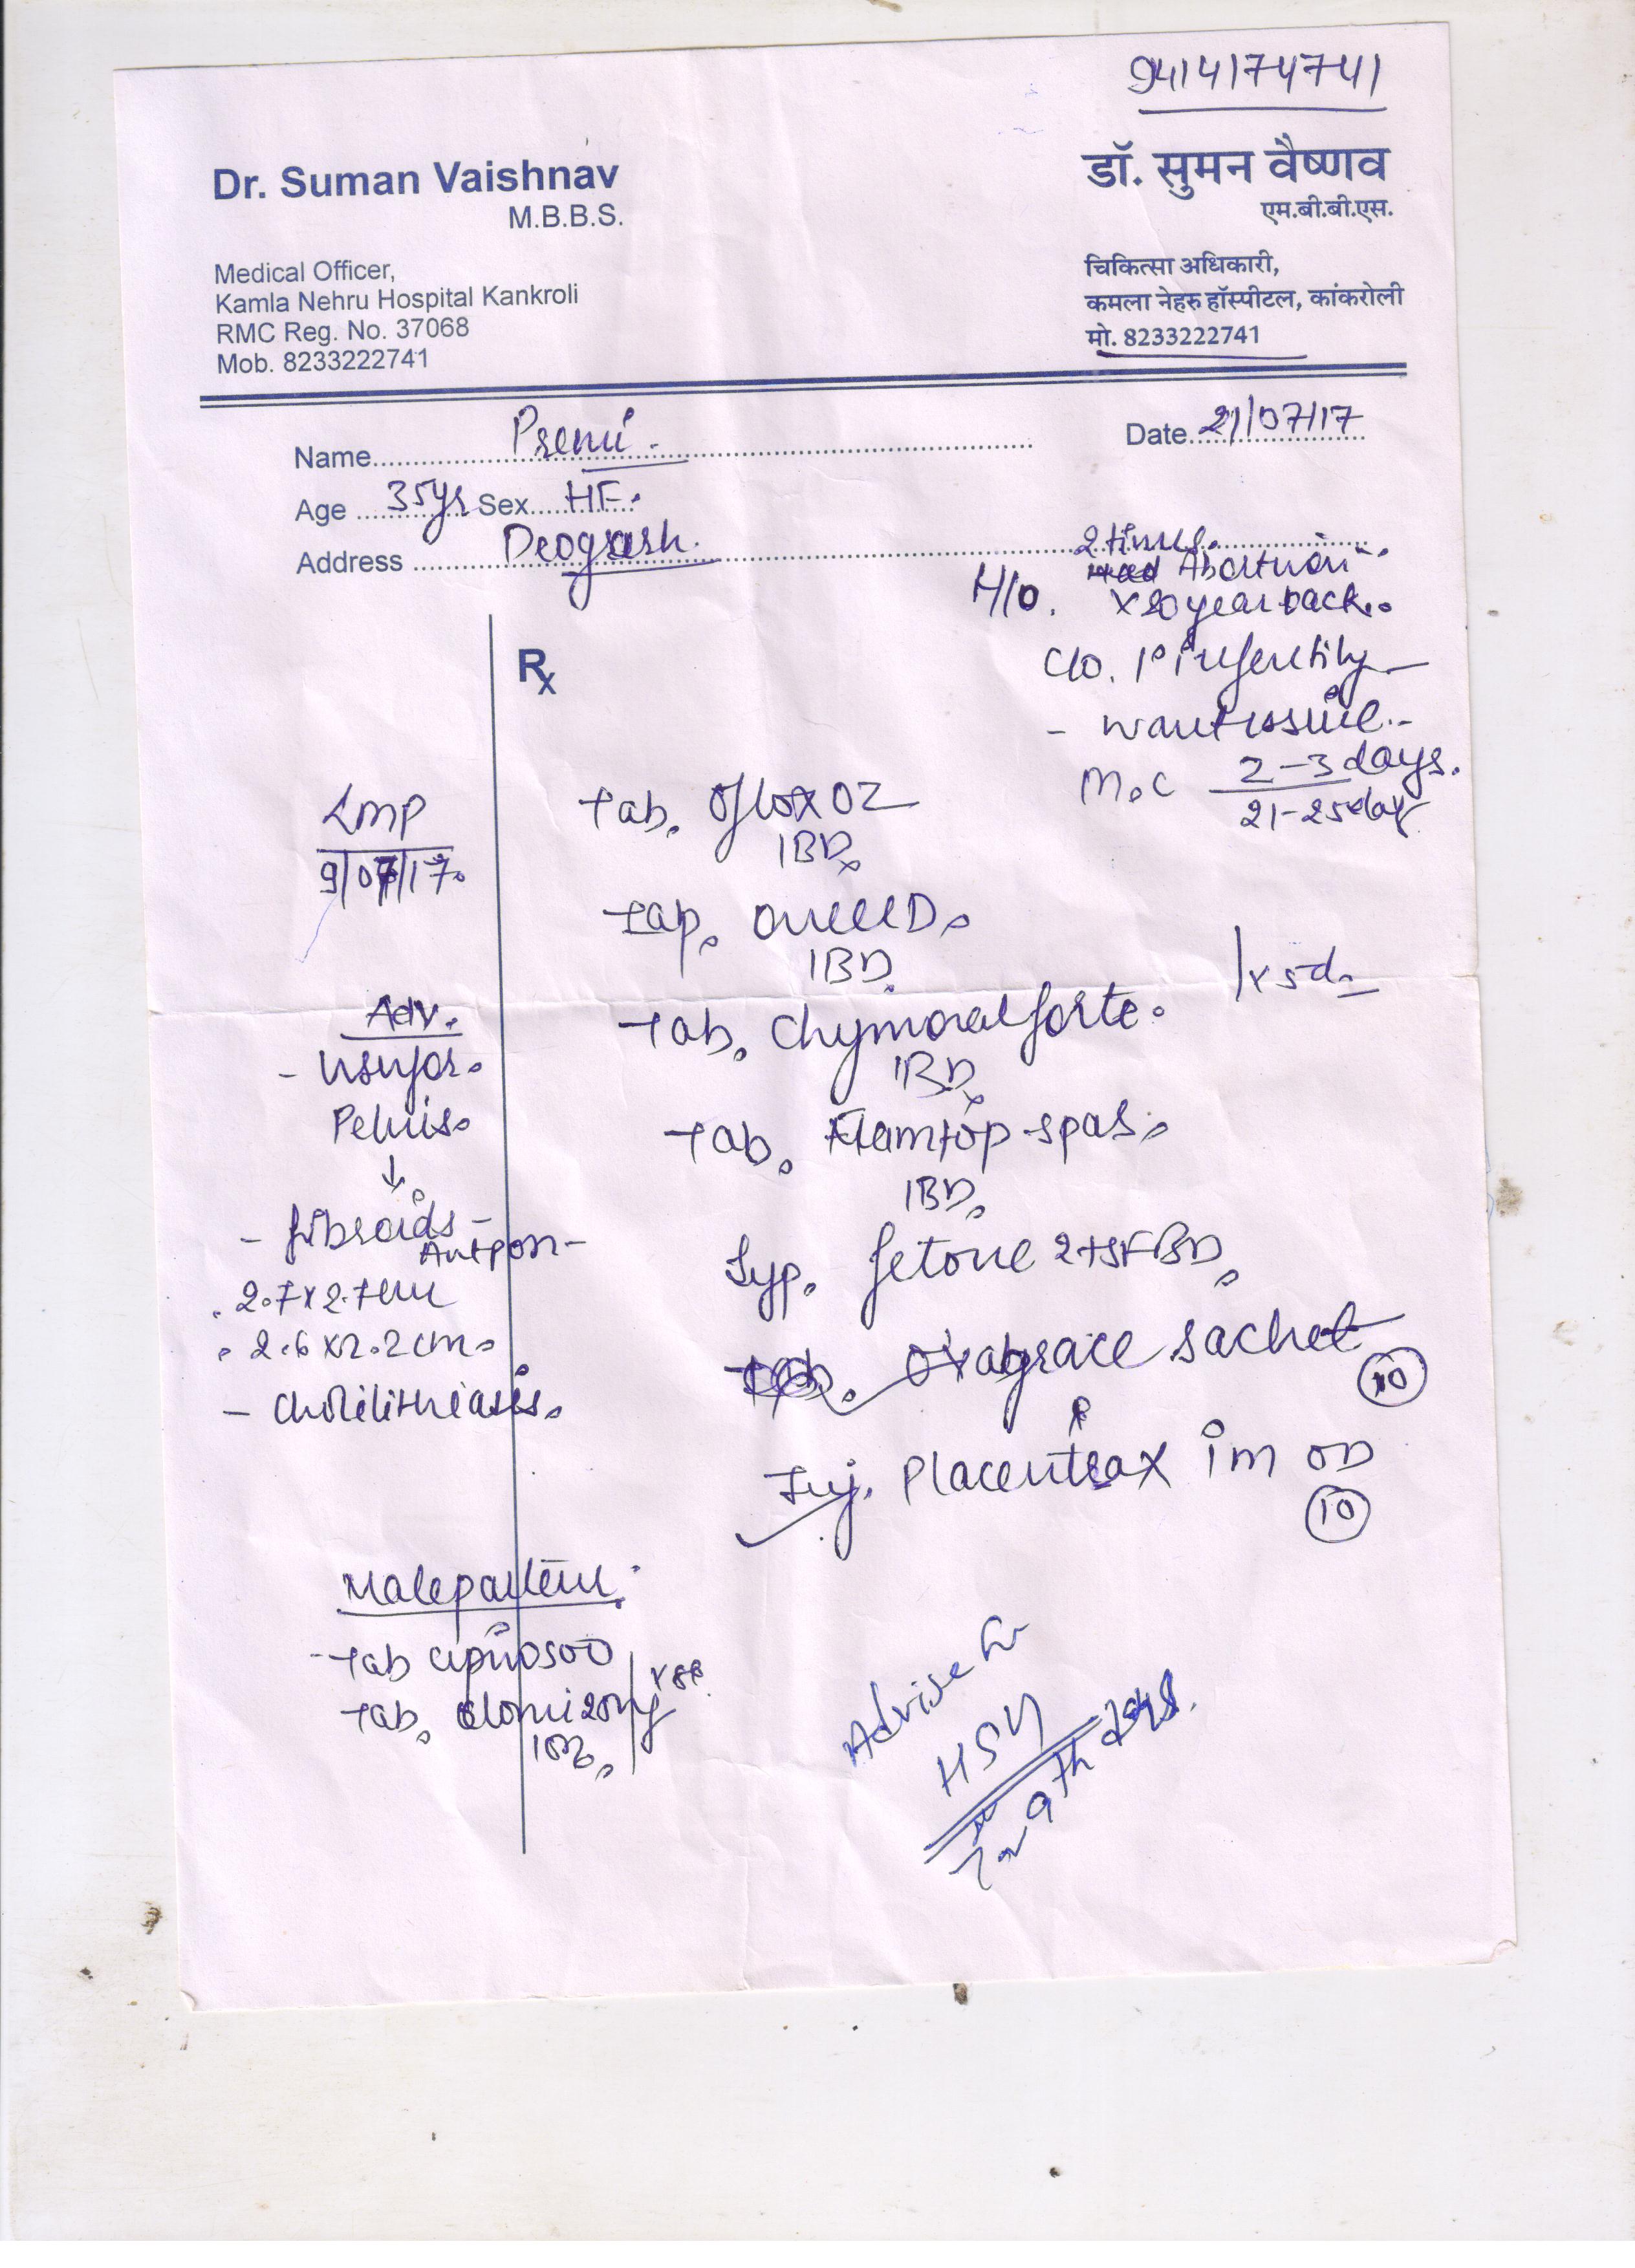 9414174741
Dr. Suman Vaishnav
M.B.B.S.
Medical Officer,
Kamla Nehru Hospital Kankroli
RMC Reg. No. 37068
Mob. 8233222741
डॉ. सुमन वैष्णव
एम.बी.बी.एस.
चिकित्सा अधिकारी,
कमला नेहरु हॉस्पीटल, कांकरोली
मो. 8233222741
Name
Date 21/07/17
Age 35yr Sex HF.
Address Deogrash.
2 times.
Abortion
H/O. year back.
C/O. 1° infertility
- want issue.
M.C 2-3 days.
21-25 day
Rx
LMP
9/07/17.
Tab. Oflox OZ
1BD
Tab.
1BD.
Tab. Chymoral forte.
1BD
x 5 d.
Tab. Flamtop-spas.
1BD.
Syp. fetone 2tsf BD.
Oxabgrace sachet
10
Inj. Placentrax im OD
10
Adv.
-
Pelvis.
↓
- fibroids -
Ant
. 2.7 x 2.7 cm
. 2.6 x 2.2 cm.
- Cholilithiasis.
Male partern.
Tab 500
Tab. 20mg
Advise for
HSG
9th